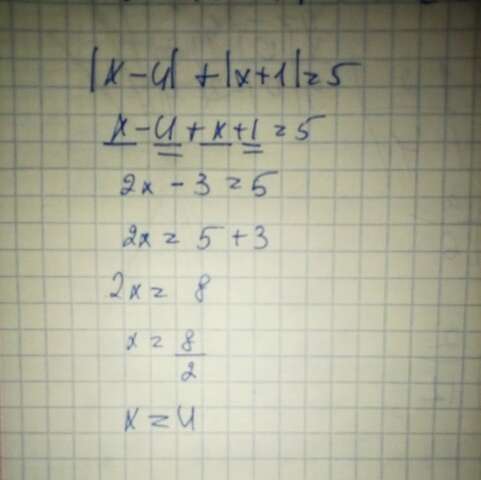 |x-4|+|x+1|=5
x-4+x+1=5
2x-3=5
2x=5+3
2x=8
x=8/2
x=4